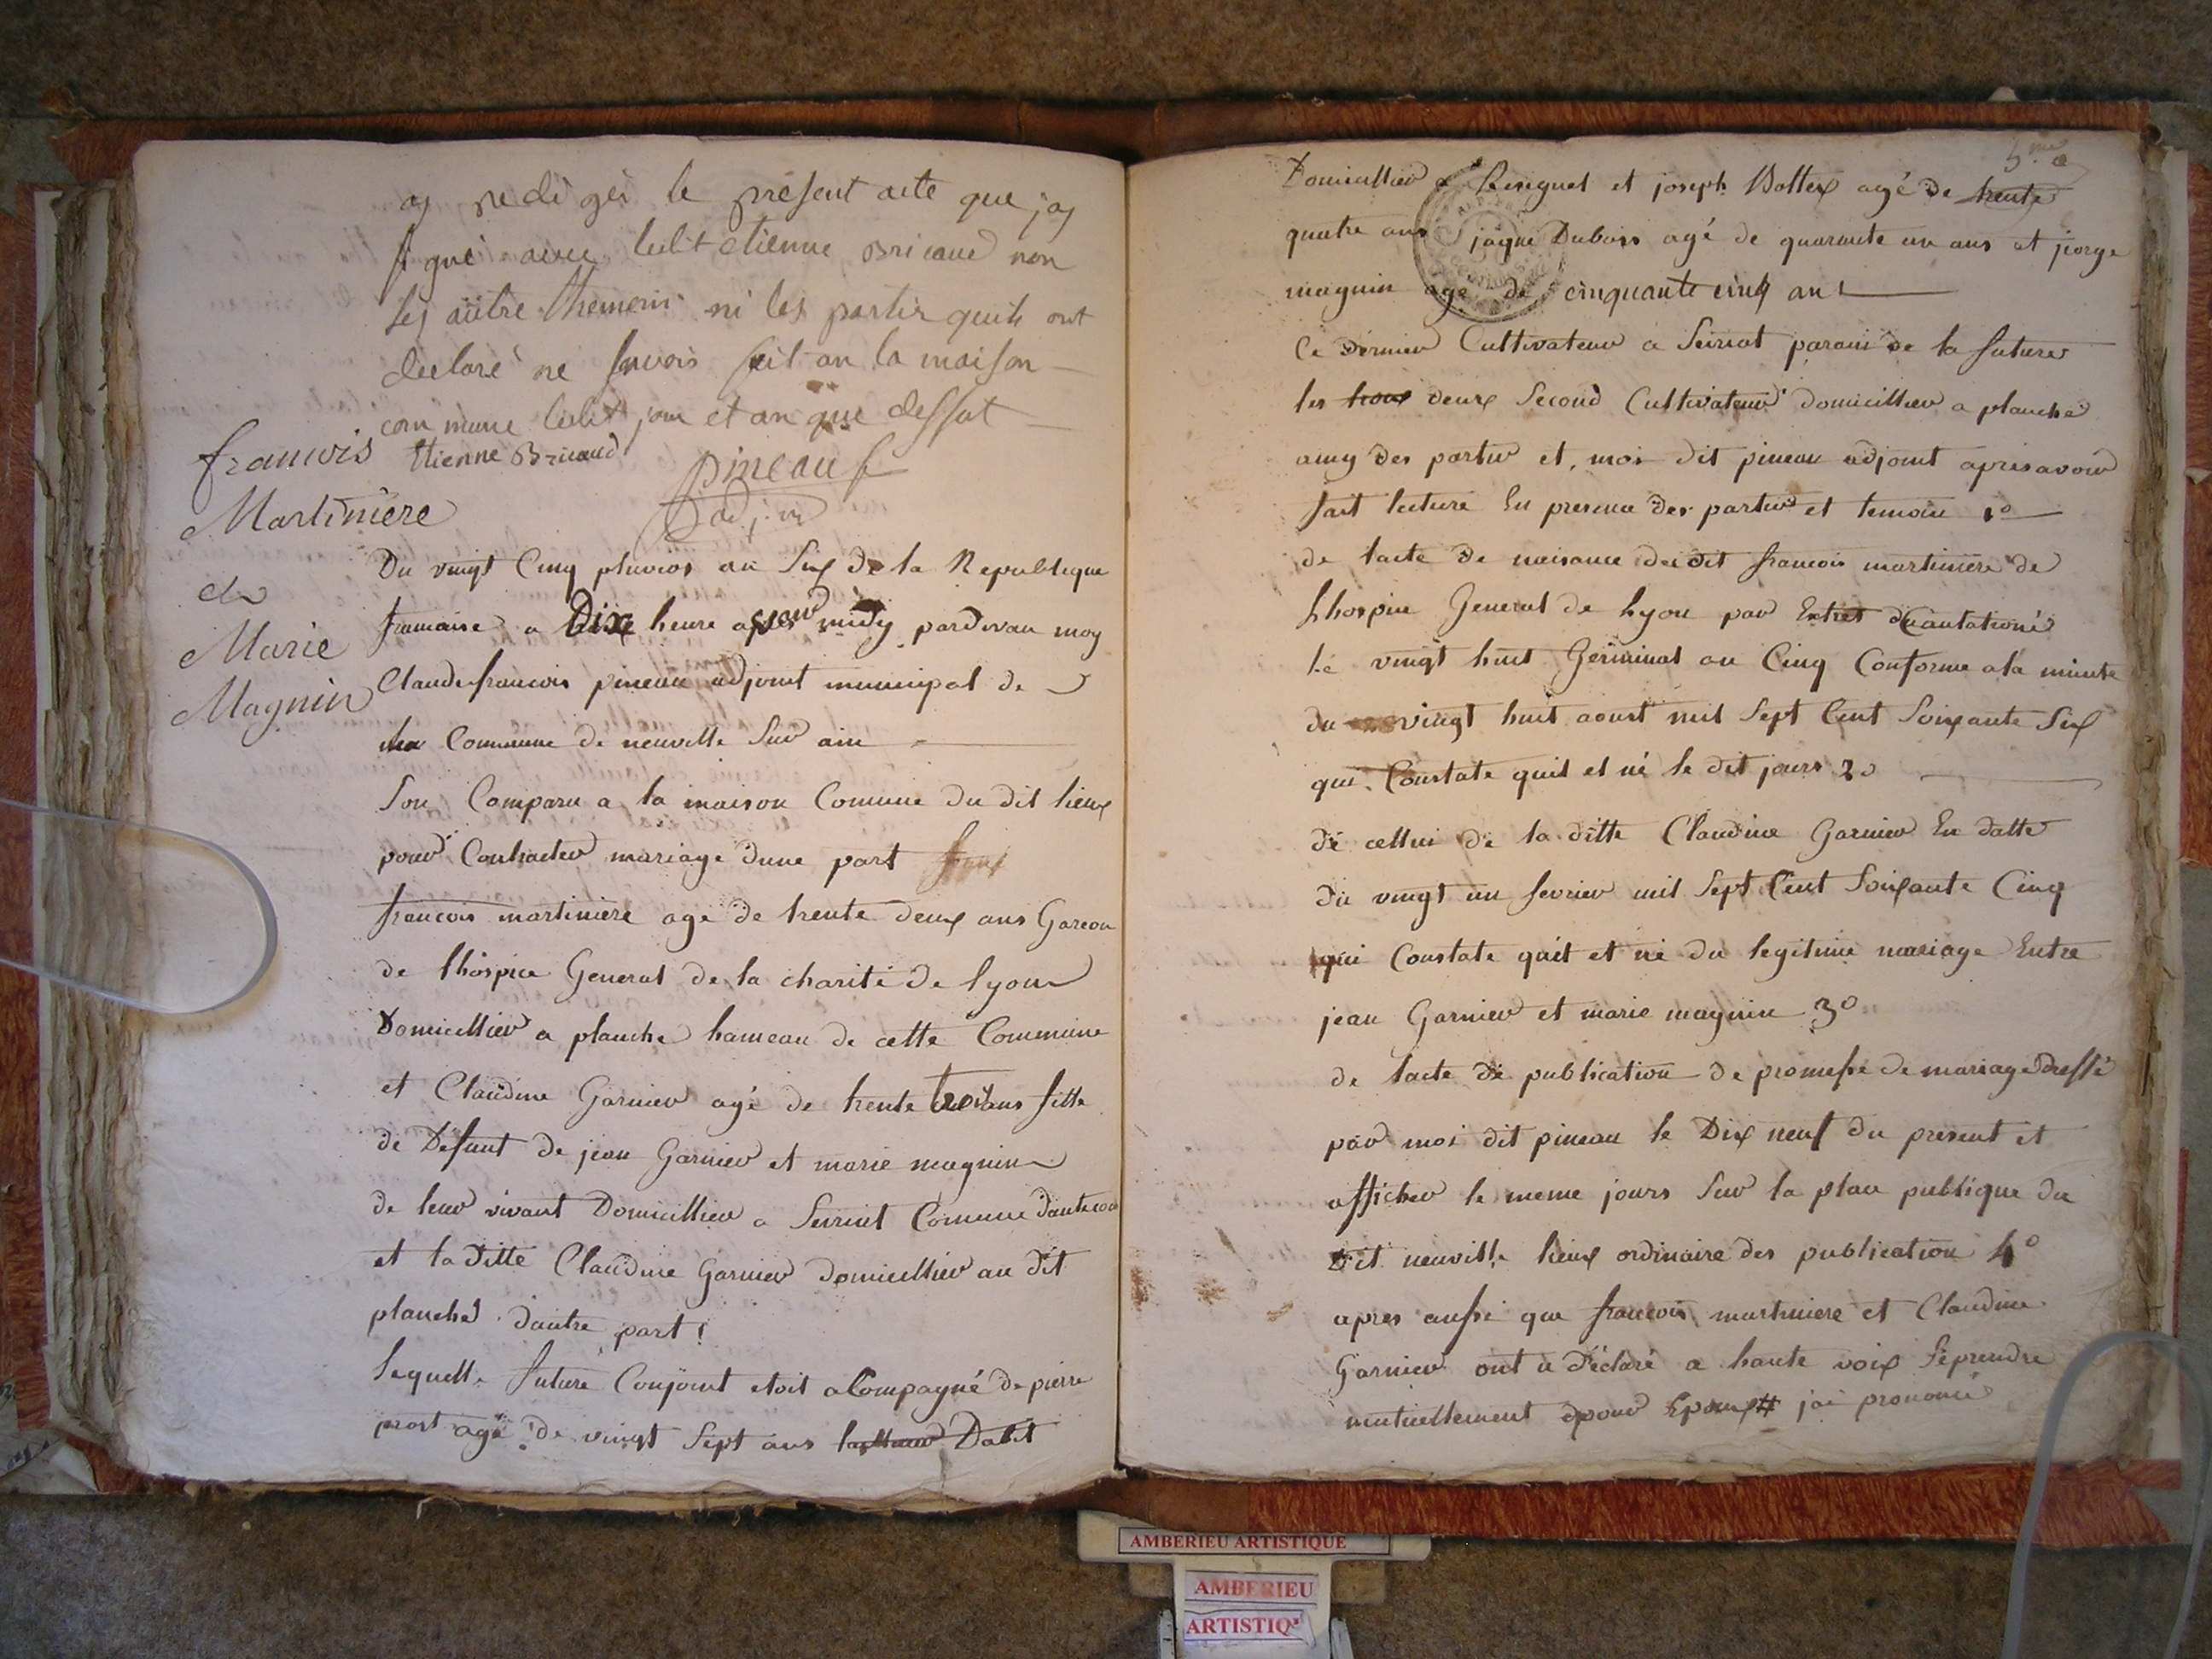 ay redigés le présent acte que jay
signé avec ledit etienne Bricaud non
les autre themoin ni les partis quils ont
declaré ne savois fait an la maison
commune ledit jour et an que dessut
Etienne Bricaud
Pineau
adj
francois
Martiniere
et
Marie
Magnin
Du vingt Cinq pluvios an Six de la Republique
francaise a Dix heure avend midy pardevan moy
Claude francois pineau adjoint municipal de
la Commune de neuville Sur ain
Son Comparu a la maison Comune du dit lieux
pour Contracter mariage dune part
francois martiniere agé de trente deux ans Garcon
de lhospice General de la charité de lyon
Domicillier a planche hameau de cette Commune
et Claudine Garnier agé de trente trois ans fille
de Defunt de jean Garnier et marie magnin
de leur vivant Domicillier a Seiriat Comune
et la Ditte Claudine Garnier domicillier au dit
planche dautre part
lequelle future Conjoint etoit acompagné de pierre
prost agé de vingt Sept ans
5me
Domicillier a Resignel et joseph Bottex agé de trente
quatre ans jaque Dubois agé de quarante un ans et jeorge
magnin agé de cinquante cinq ans
Ce dernier Cultivateur a Seiriat parain de la future
les trois deux Second Cultivateur domicillier a planche
amy des partie et, moi dit pineau adjoint apres avoir
fait lecture En presence des partie et temoin 1o
de lacte de naisance du dit francois martiniere de
lhospice General de Lyon par Extret
le vingt huit Germinal an Cinq Conforme a la minute
du vingt huit aoust mil Sept Cent Soixante Six
qui Constate quil et né le dit jours 2o
de cellui de la ditte Claudine Garnier En datte
du vingt un fevrier mil Sept Cent Soixante Cinq
qui Constate quil et né du legitime mariage Entre
jean Garnier et marie magnin 3o
de lacte de publication de promesse de mariage dressé
par moi dit pineau le Dix neuf du present et
afficher le meme jours Sur la place publique du
Dit neuville lieux ordinaire des publication 4o
apres aussi que francois martiniere et Claudine
Garnier ont a déclaré a haute voix Seprendre
mutuellement pour Epoux # jai prononcé
AMBERIEU ARTISTIQUE
AMBERIEU
ARTISTIQ